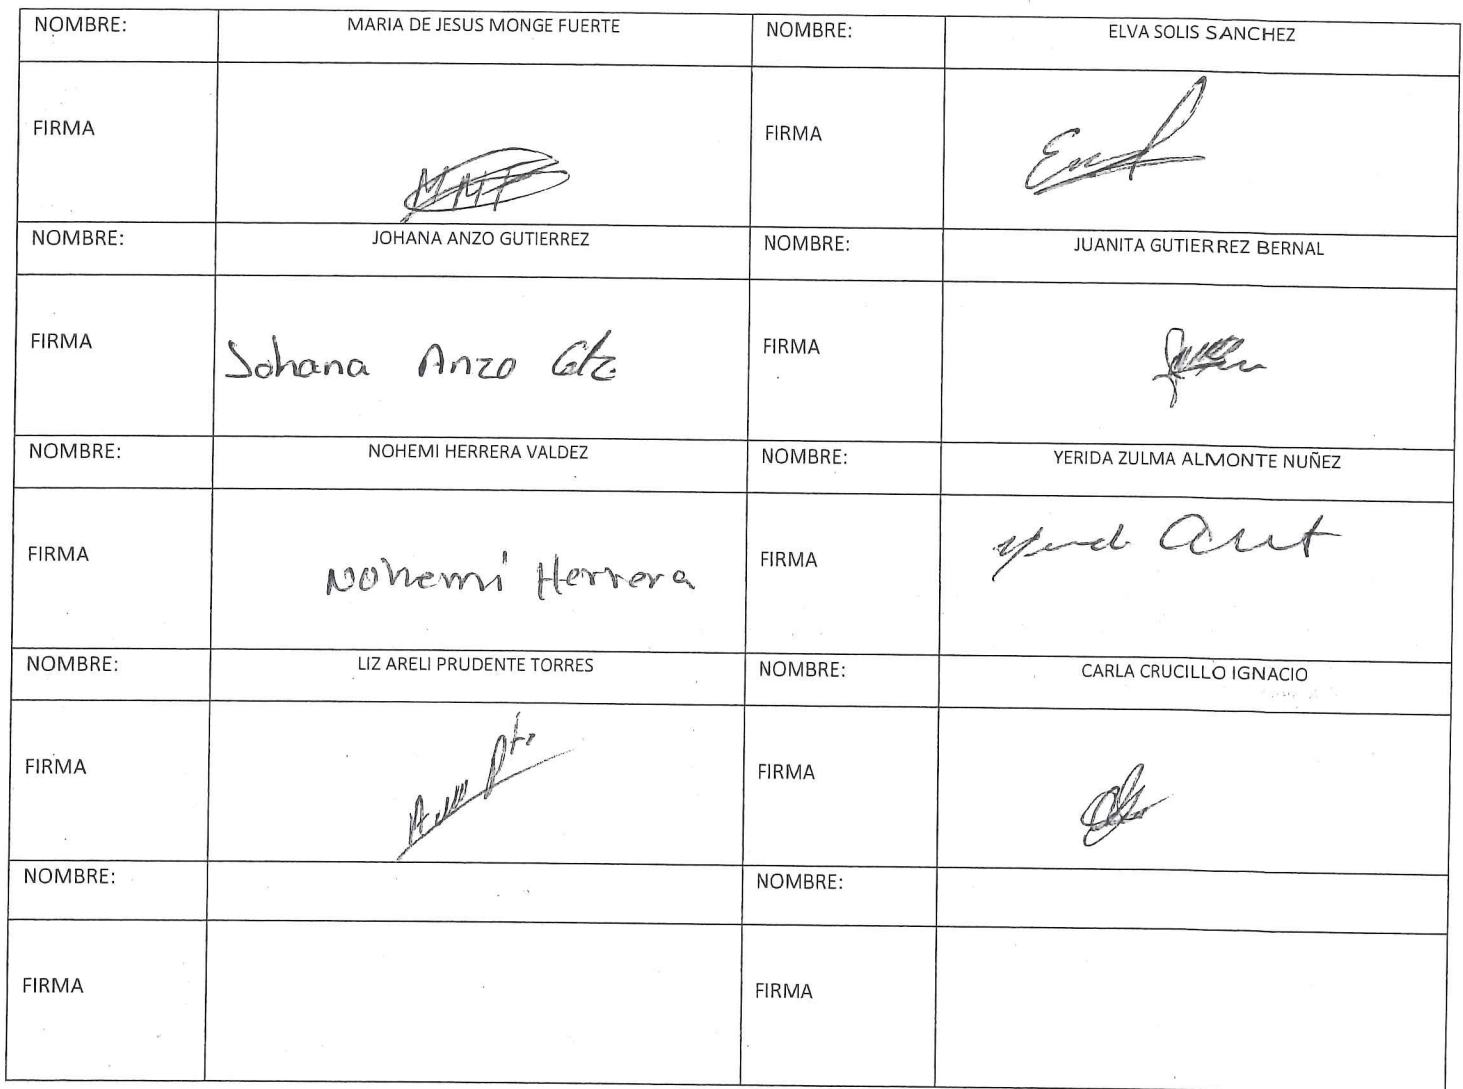 NOMBRE: MARIA DE JESUS MONGE FUERTE NOMBRE: ELVA SOLIS SANCHEZ
FIRMA FIRMA
NOMBRE: JOHANA ANZO GUTIERREZ NOMBRE: JUANITA GUTIERREZ BERNAL
FIRMA Johana Anzo Gtz FIRMA
NOMBRE: NOHEMI HERRERA VALDEZ NOMBRE: YERIDA ZULMA ALMONTE NUÑEZ
FIRMA Nohemí Herrera FIRMA
NOMBRE: LIZ ARELI PRUDENTE TORRES NOMBRE: CARLA CRUCILLO IGNACIO
FIRMA FIRMA
NOMBRE: NOMBRE:
FIRMA FIRMA